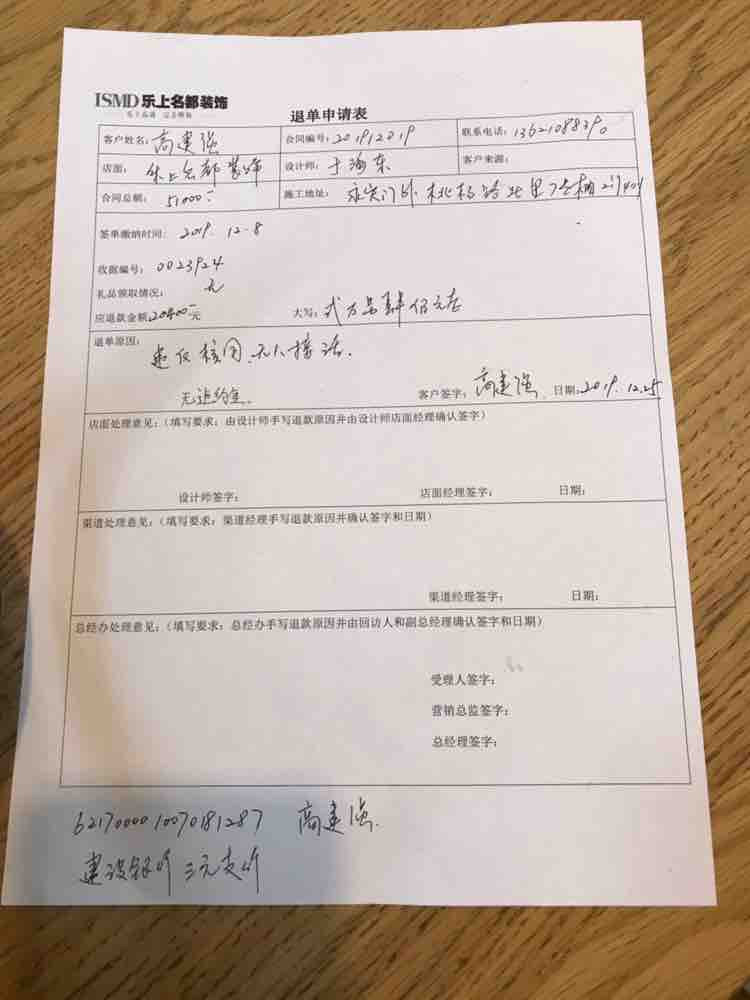 ISMD 乐上名都装饰
退单申请表
客户姓名：高建强 合同编号：20191219 联系电话：13621088390
店面：乐上名都装饰 设计师：于海东 客户来源：
合同总额：51000 施工地址：永定门外 桃杨路北里7号楼
签单缴纳时间：2019.12.8
收据编号：0023924
礼品领取情况：无
应退款金额20400元 大写：弍万 肆佰元
退单原因：
无人接话.
无违约金. 客户签字：高建强 日期：2019.12.25
店面处理意见：（填写要求：由设计师手写退款原因并由设计师店面经理确认签字）
设计师签字： 店面经理签字： 日期：
渠道处理意见：（填写要求：渠道经理手写退款原因并确认签字和日期）
渠道经理签字： 日期：
总经办处理意见：（填写要求：总经办手写退款原因并由回访人和副总经理确认签字和日期）
受理人签字：
营销总监签字：
总经理签字：
6217000010070181287 高建强.
建设银行 三元支行